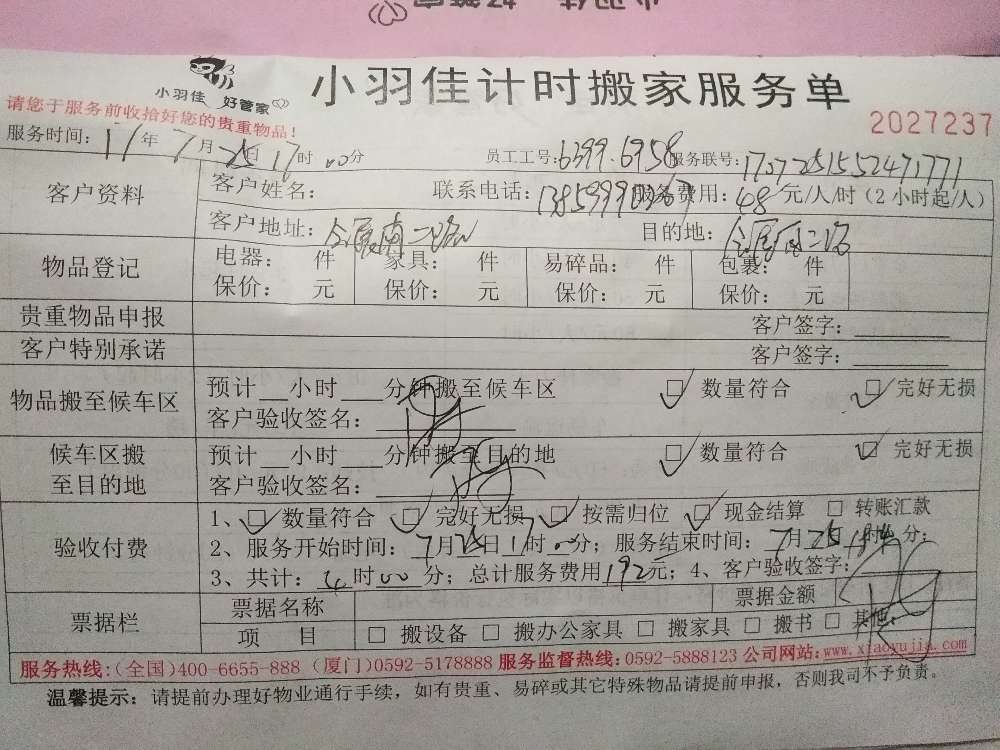 小羽佳 好管家
小羽佳计时搬家服务单
请您于服务前收拾好您的贵重物品!
2027237
服务时间: 17年 7月 25日 17时 00分 员工工号:6399.6958 服务联号:
客户资料
客户姓名: 联系电话: 服务费用: 48 元/人/时(2小时起/人)
客户地址: 会展南二路 目的地: 会展南二路
物品登记
电器: 件 家具: 件 易碎品: 件 包裹: 件
保价: 元 保价: 元 保价: 元 保价: 元
贵重物品申报 客户签字:
客户特别承诺 客户签字:
物品搬至候车区
预计__小时___分钟搬至候车区 ☑ 数量符合 ☑ 完好无损
客户验收签名:
候车区搬至目的地
预计__小时___分钟搬至目的地 ☑ 数量符合 ☑ 完好无损
客户验收签名:
验收付费
1、☑ 数量符合 ☑ 完好无损 ☑ 按需归位 ☑ 现金结算 □ 转账汇款
2、服务开始时间: 7月25日17时00分; 服务结束时间: 7月25日 时 分;
3、共计: 4时00分; 总计服务费用192元; 4、客户验收签字:
票据栏
票据名称 票据金额
项 目 □ 搬设备 □ 搬办公家具 □ 搬家具 □ 搬书 □ 其他:
服务热线:(全国)400-6655-888 (厦门)0592-5178888 服务监督热线:0592-5888123 公司网站:www.xiaoyujia.com
温馨提示: 请提前办理好物业通行手续, 如有贵重、易碎或其它特殊物品请提前申报, 否则我司不予负责。